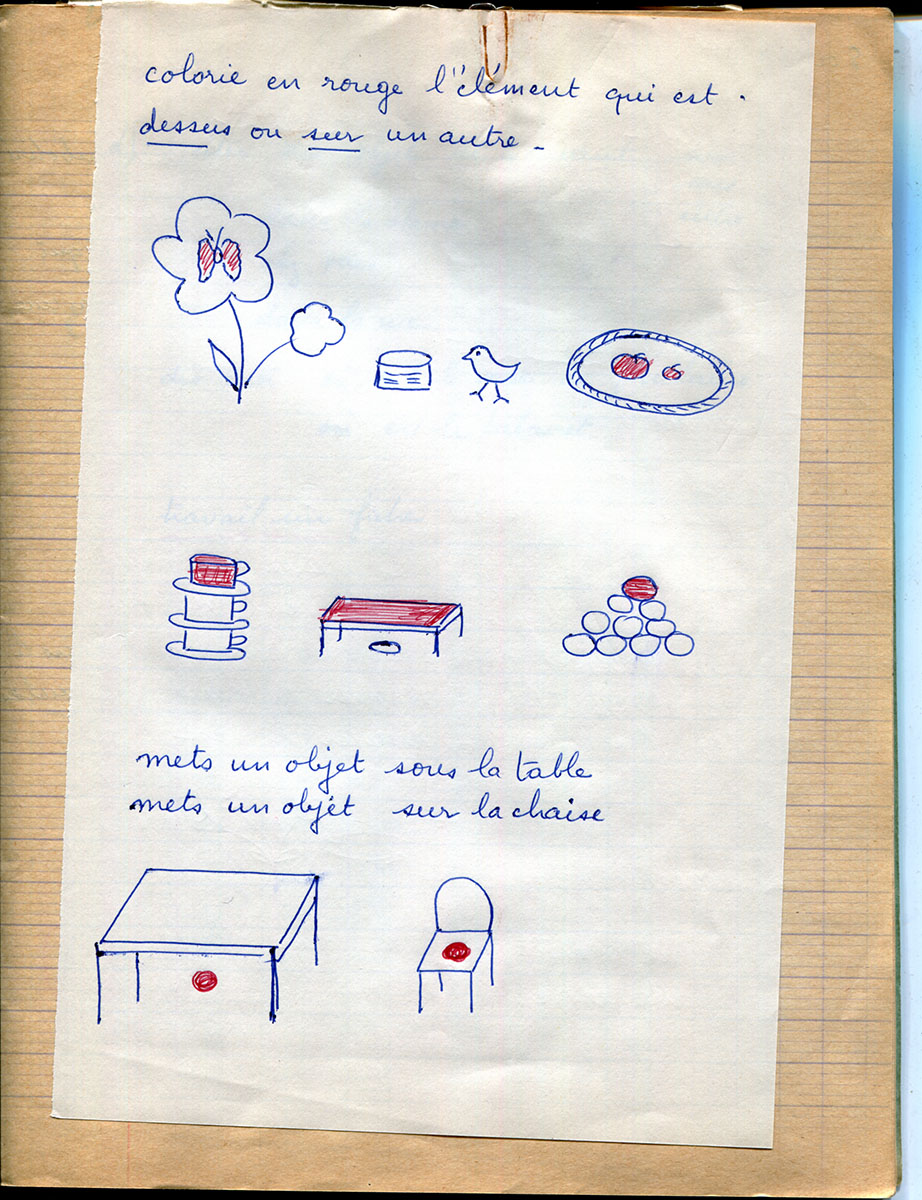 colorie en rouge l'élément qui est .
dessus ou sur un autre .
travail sur fiche
mets un objet sous la table
mets un objet sur la chaise